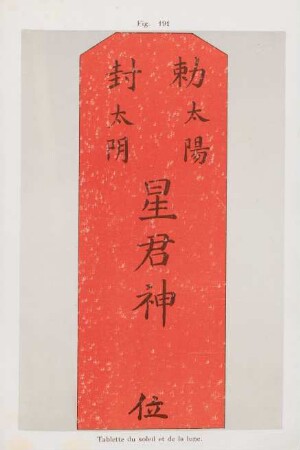 Fig. 191
勅太陽
封太阴
星君神
位
Tablette du soleil et de la lune.